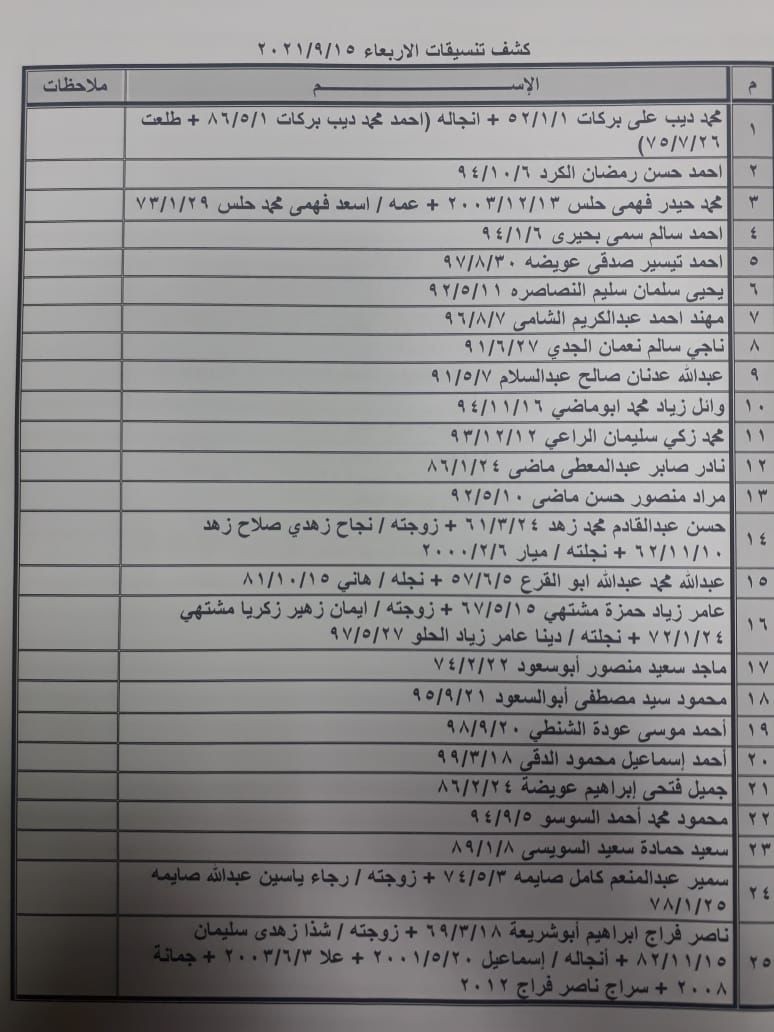 كشف تنسيقات الاربعاء ٢٠٢١/٩/١٥
م الإســــــم ملاحظات
١ محمد ديب على بركات ٥٢/١/١ + انجاله (احمد محمد ديب بركات ٨٦/٥/١ + طلعت
٧٥/٧/٢٦)
٢ احمد حسن رمضان الكرد ٩٤/١٠/٦
٣ محمد حيدر فهمى حلس ٢٠٠٣/١٢/١٣ + عمه / اسعد فهمى محمد حلس ٧٣/١/٢٩
٤ احمد سالم سمى بحيرى ٩٤/١/٦
٥ احمد تيسير صدقى عويضه ٩٧/٨/٣٠
٦ يحيى سلمان سليم النصاصره ٩٢/٥/١١
٧ مهند احمد عبدالكريم الشامى ٩٦/٨/٧
٨ ناجي سالم نعمان الجدي ٩١/٦/٢٧
٩ عبدالله عدنان صالح عبدالسلام ٩١/٥/٧
١٠ وائل زياد محمد ابوماضي ٩٤/١١/١٦
١١ محمد زكي سليمان الراعي ٩٣/١٢/١٢
١٢ نادر صابر عبدالمعطى ماضى ٨٦/١/٢٤
١٣ مراد منصور حسن ماضى ٩٢/٥/١٠
١٤ حسن عبدالقادم محمد زهد ٦١/٣/٢٤ + زوجته / نجاح زهدي صلاح زهد
٦٢/١١/١٠ + نجلته / ميار ٢٠٠٠/٢/٦
١٥ عبدالله محمد عبدالله ابو القرع ٥٧/٦/٥ + نجله / هاني ٨١/١٠/١٥
١٦ عامر زياد حمزة مشتهي ٦٧/٥/١٥ + زوجته / ايمان زهير زكريا مشتهي
٧٢/١/٢٤ + نجلته / دينا عامر زياد الحلو ٩٧/٥/٢٧
١٧ ماجد سعيد منصور أبوسعود ٧٤/٢/٢٢
١٨ محمود سيد مصطفى أبوالسعود ٩٥/٩/٢١
١٩ أحمد موسى عودة الشنطي ٩٨/٩/٢٠
٢٠ أحمد إسماعيل محمود الدقى ٩٩/٣/١٨
٢١ جميل فتحى إبراهيم عويضة ٨٦/٢/٢٤
٢٢ محمود محمد أحمد السوسو ٩٤/٩/٥
٢٣ سعيد حمادة سعيد السويسى ٨٩/١/٨
٢٤ سمير عبدالمنعم كامل صايمه ٧٤/٥/٣ + زوجته / رجاء ياسين عبدالله صايمه
٧٨/١/٢٥
٢٥ ناصر فراج ابراهيم أبوشريعة ٦٩/٣/١٨ + زوجته / شذا زهدى سليمان
٨٢/١١/١٥ + أنجاله / إسماعيل ٢٠٠١/٥/٢٠ + علا ٢٠٠٣/٦/٣ + جمانة
٢٠٠٨ + سراج ناصر فراج ٢٠١٢